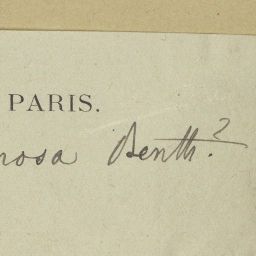 PARIS.
rosa Benth.?